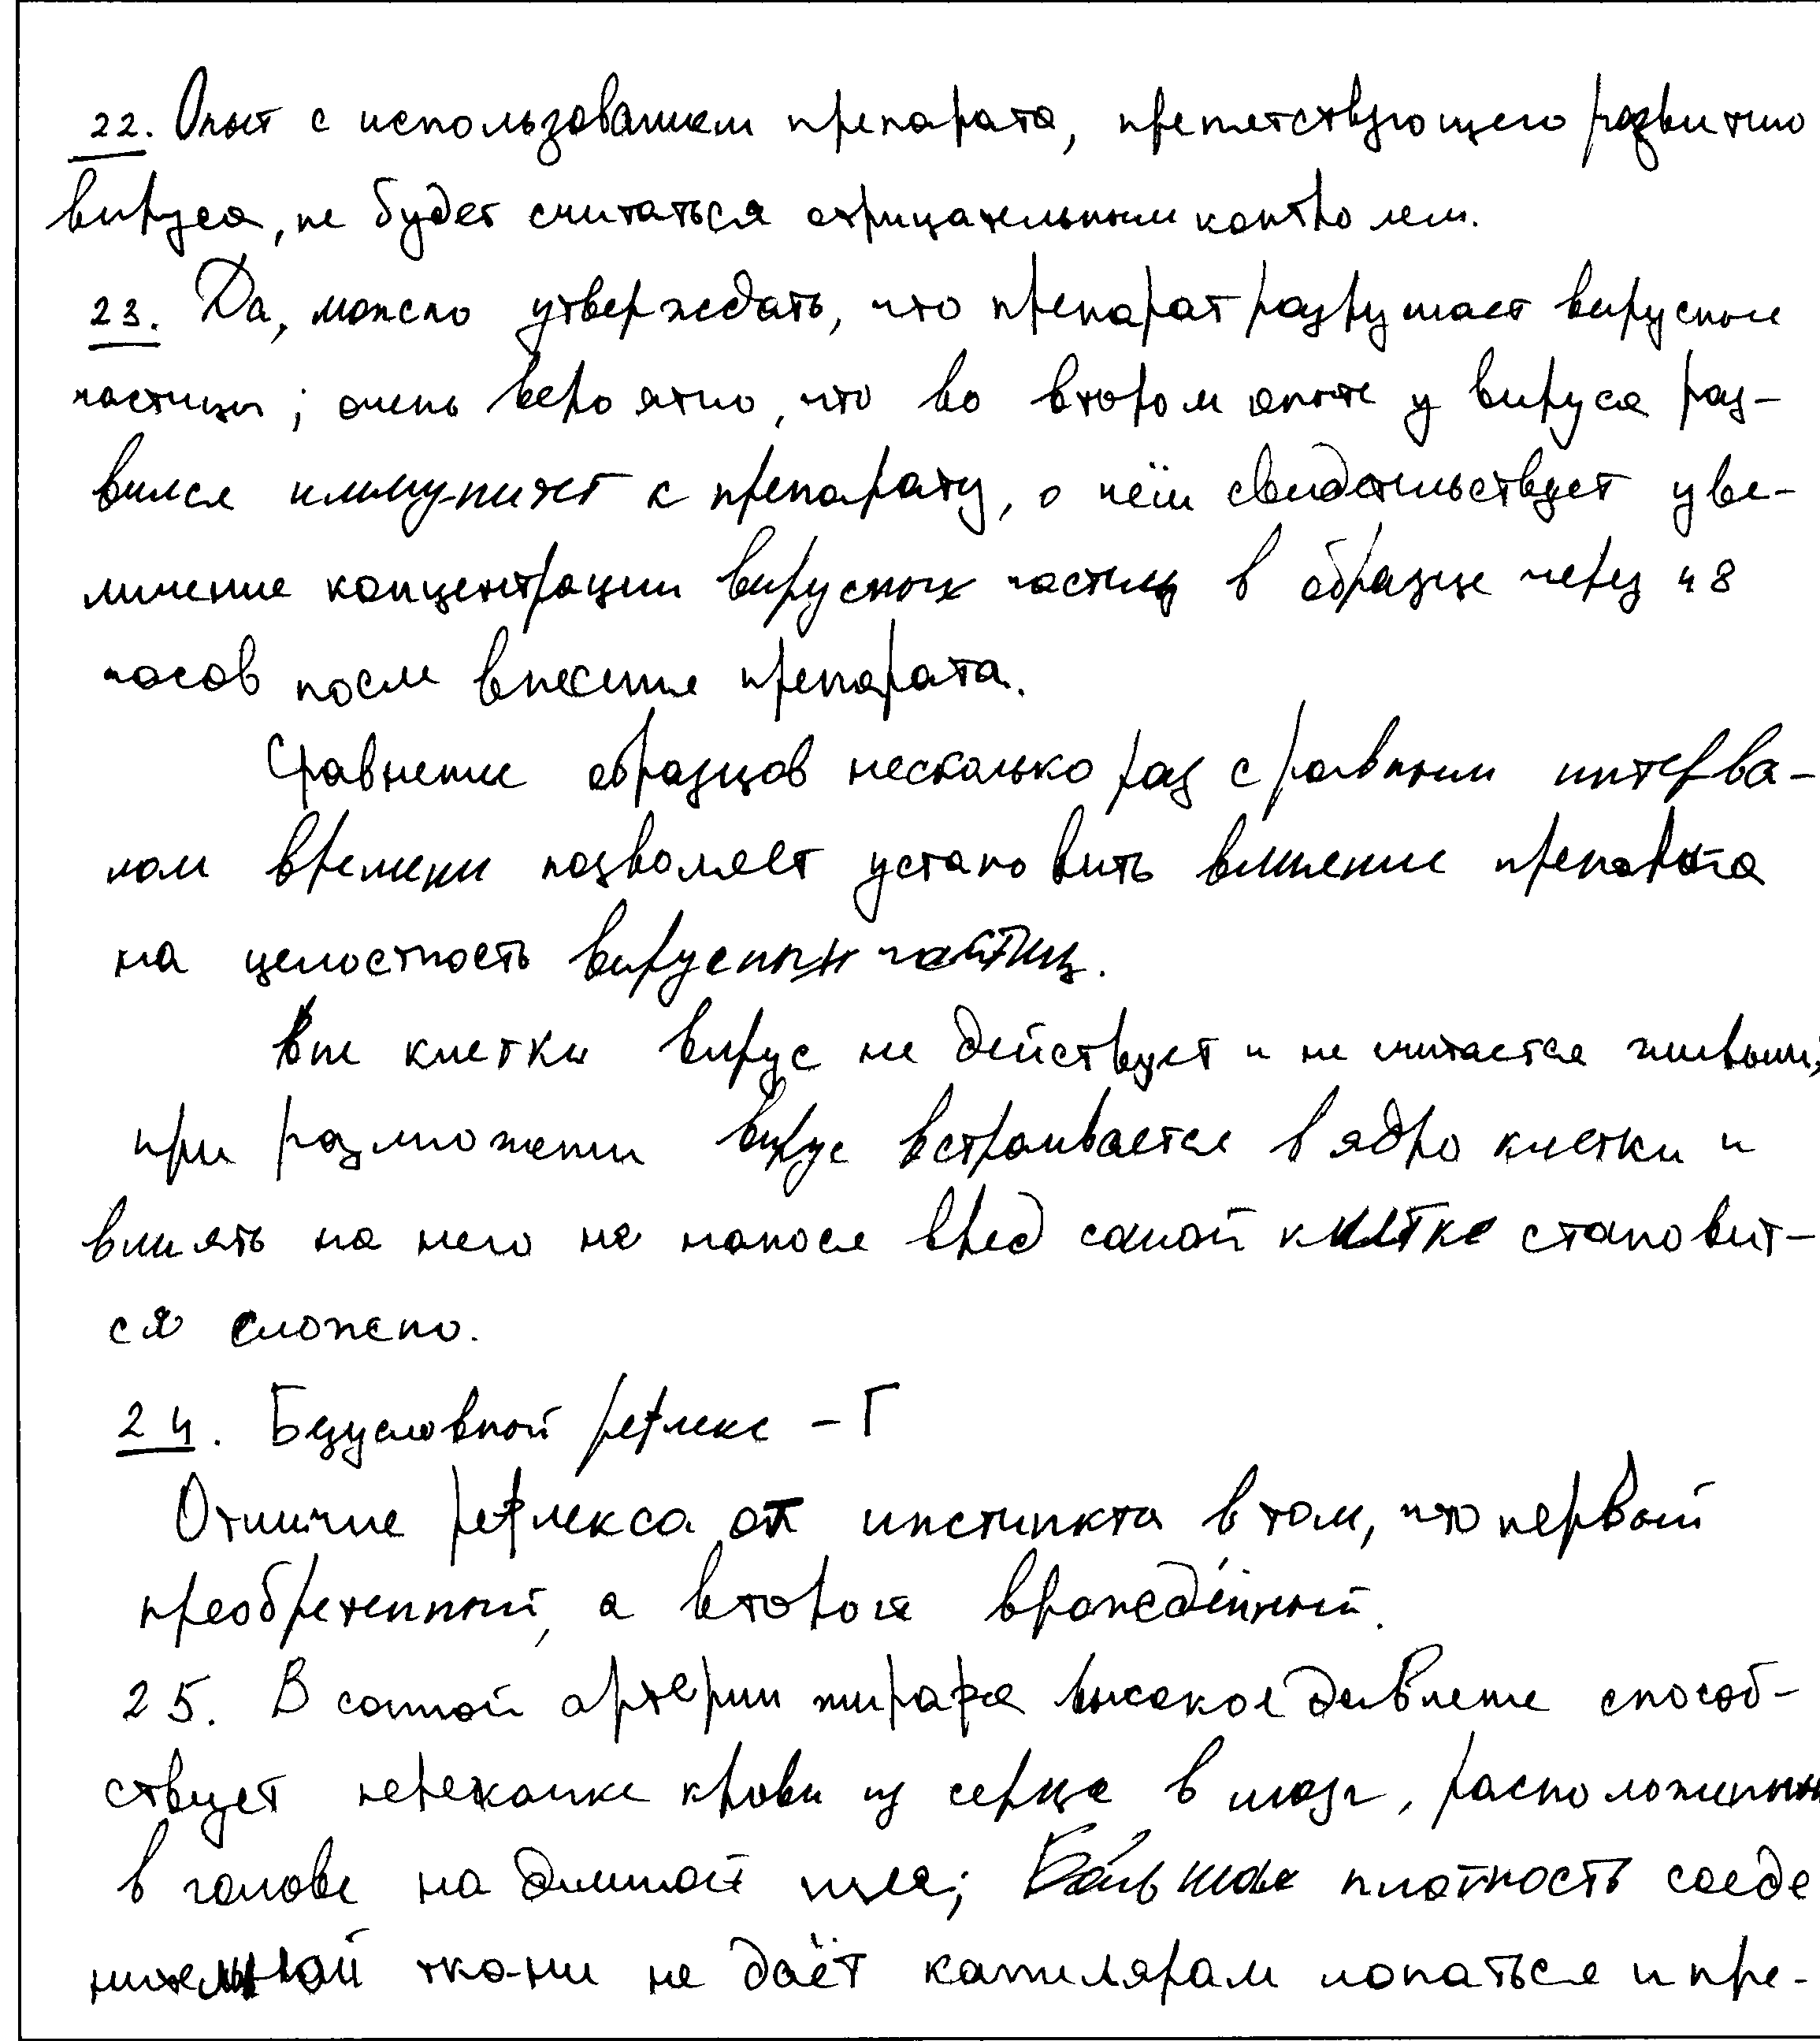 22. Опыт с использованием препарата, препятствующего развитию
вируса, не будет считаться отрицательным контролем.
23. Да, можно утверждать, что препарат разрушает вирусные
частицы; очень вероятно, что во втором опыте у вируса раз-
вился иммунитет к препарату, о чём свидетельствует уве-
личение концентрации вирусных частиц в образце через 48
часов после внесения препарата.
Сравнение образцов несколько раз с равным интерва-
лом времени позволяет установить влияние препарата
на целостность вирусных частиц.
Вне клетки вирус не действует и не считается живым;
при размножении вирус встраивается в ядро клетки и
влиять на него не нанося вред самой клетке становит-
ся сложно.
24. Безусловный рефлекс – Г
Отличие рефлекса от инстинкта в том, что первый
преобретенный, а второй врождённый.
25. В сонной артерии жирафа высокое давление способ-
ствует перекачке крови из сердца в мозг, расположенный
в голове на длинной шее; Большая плотность соеде
нительной ткани не даёт капилярам лопаться и пре-